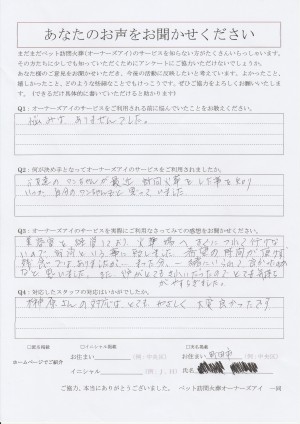 あなたのお声をお聞かせください
まだまだペット訪問火葬(オーナーズアイ)のサービスを知らない方がたくさんいらっしゃいます。
その方たちに少しでも知っていただくためにアンケートにご協力いただけないでしょうか。
あなた様のご意見をお聞かせいただき、今後の活動に反映したいと考えています。よかったこと、
嬉しかったこと、どのような些細なことでもけっこうです。ぜひご協力をよろしくお願いいたしま
す。(できるだけ具体的に書いていただけると助かります)
Q1:オーナーズアイのサービスをご利用される前に悩んでいたことをお教えください。
悩みは ありませんでした。
Q2:何が決め手となってオーナーズアイのサービスをご利用されましたか。
ワンちゃんが最近 訪問火葬を した事を知り
いつか 自分のワンちゃんもと 思って いました。
Q3:オーナーズアイのサービスを実際にご利用なさってみての感想をお聞かせください。
美容室を 経営しており 火葬場へ すぐに つれて行けな
いので 希望の時間が
一緒にいられて 良かった
と思いました。
Q4:対応したスタッフの対応はいかがでしたか。
榊原さんの対応は とても やさしく 大変良かったです
□匿名掲載 □イニシャル掲載 □実名掲載
ホームページでご紹介 お住まい (例:中央区) お住まい 町田市 (例:中央区)
イニシャル (例:J.H) 氏名
ご協力、本当にありがとうございました。 ペット訪問火葬オーナーズアイ 一同